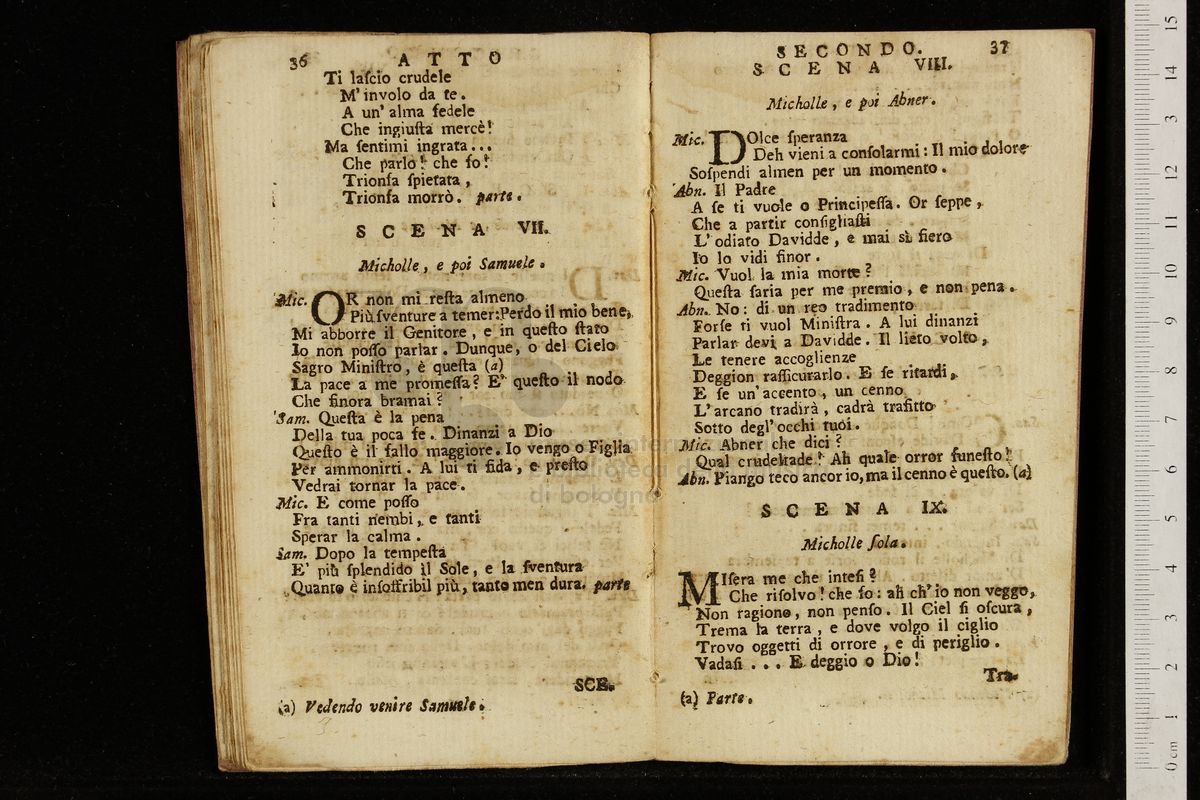 36 ATTO
Ti laſcio crudele
M' involo da te.
A un' alma fedele
Che ingiuſta mercè!
Ma ſentimi ingrata...
Che parlo! che fo!
Trionfa ſpietata,
Trionfa morrò. parte.
SCENA VII.
Micholle, e poi Samuele.
Mic. OR non mi reſta almeno
Più ſventure a temer: Perdo il mio bene,
Mi abborre il Genitore, e in queſto ſtato
Io non poſſo parlar. Dunque, o del Cielo
Sagro Miniſtro, è queſta (a)
La pace a me promeſſa? E' queſto il nodo
Che finora bramai?
Sam. Queſta è la pena
Della tua poca fe. Dinanzi a Dio
Queſto è il fallo maggiore. Io vengo o Figlia
Per ammonirti. A lui ti fida, e preſto
Vedrai tornar la pace.
Mic. E come poſſo
Fra tanti nembi, e tanti
Sperar la calma.
Sam. Dopo la tempeſta
E' più ſplendido il Sole, e la ſventura
Quanto è inſoffribil più, tanto men dura. parte
SCE.
(a) Vedendo venire Samuele.
SECONDO. 37
SCENA VIII.
Micholle, e poi Abner.
Mic. DOlce ſperanza
Deh vieni a conſolarmi: Il mio dolore
Soſpendi almen per un momento.
Abn. Il Padre
A ſe ti vuole o Principeſſa. Or ſeppe,
Che a partir conſigliaſti
L' odiato Davidde, e mai sì fiero
Io lo vidi finor.
Mic. Vuol la mia morte?
Queſta ſaria per me premio, e non pena.
Abn. No: di un reo tradimento
Forſe ti vuol Miniſtra. A lui dinanzi
Parlar devi a Davidde. Il lieto volto,
Le tenere accoglienze
Deggion raſſicurarlo. E ſe ritardi,
E ſe un' accento, un cenno
L' arcano tradirà, cadrà trafitto
Sotto degl' occhi tuoi.
Mic. Abner che dici?
Qual crudeltade! Ah quale orror funeſto!
Abn. Piango teco ancor io, ma il cenno è queſto. (a)
SCENA IX.
Micholle ſola.
MIſera me che inteſi?
Che riſolvo! che fo: ah ch' io non veggo,
Non ragiono, non penſo. Il Ciel ſi oſcura,
Trema la terra, e dove volgo il ciglio
Trovo oggetti di orrore, e di periglio.
Vadaſi... E deggio o Dio!
Tra-
(a) Parte.
di bologna
0 cm 1 2 3 4 5 6 7 8 9 10 11 12 13 14 15